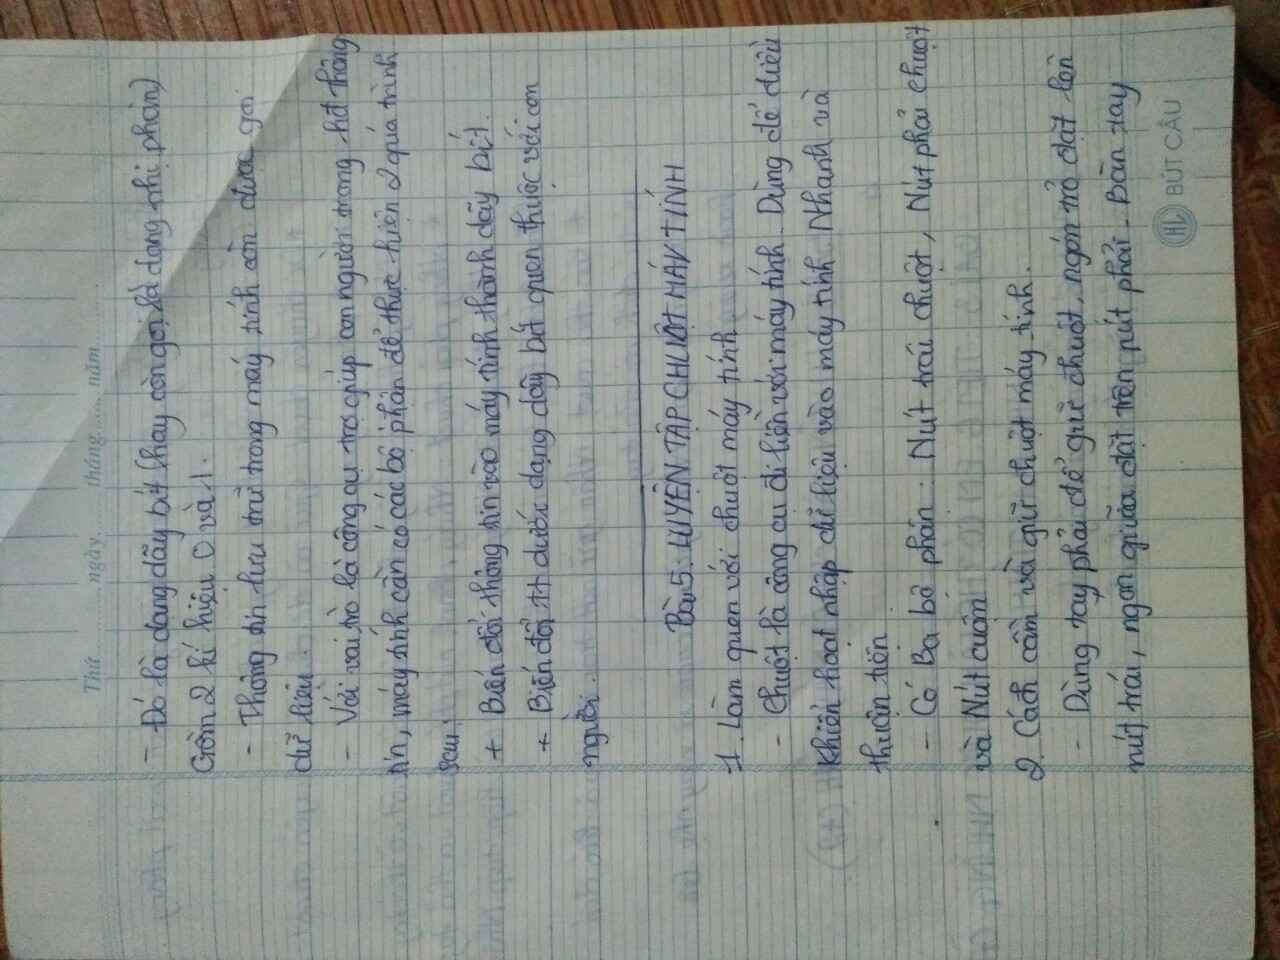 Thứ ........ ngày ........ tháng ........ năm ........
- Đó là dạng dãy bít (hay còn gọi là dạng nhị phân)
Gồm 2 kí hiệu 0 và 1.
- Thông tin lưu trữ trong máy tính còn được gọi
dữ liệu.
- Với vai trò là công cụ trợ giúp con người trong hđ thông
tin, máy tính cần có các bộ phận để thực hiện 2 quá trình
sau:
+ Biến đổi thông tin vào máy tính thành dãy bít.
+ Biến đổi tt dưới dạng dãy bít quen thuộc với con
người.
Bài 5: LUYỆN TẬP CHUỘT MÁY TÍNH
1. Làm quen với chuột máy tính
- Chuột là công cụ đi liền với máy tính. Dùng để điều
khiển hoạt nhập dữ liệu vào máy tính Nhanh và
thuận tiện
- Có Ba bộ phận: Nút trái chuột, Nút phải chuột
và Nút cuộn
2. Cách cầm và giữ chuột máy tính.
- Dùng tay phải để giữ chuột, ngón trỏ đặt lên
nút trái, ngón giữa đặt trên nút phải. Bàn tay
HL BÚT CÂU